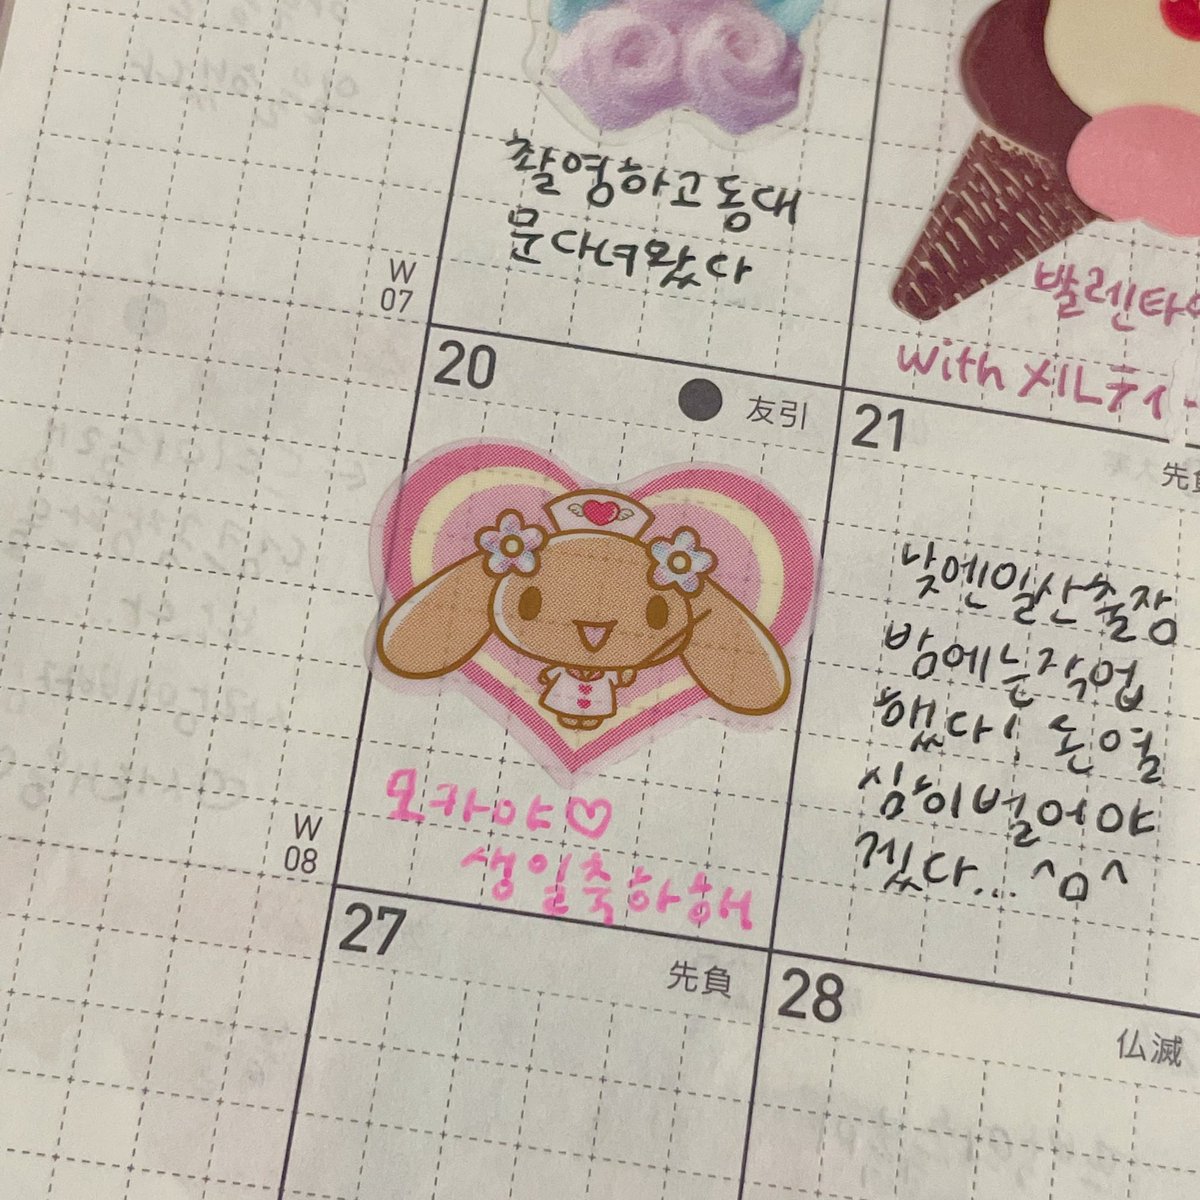 촬영하고 동대
문 다녀왔다
발렌타
with メルティ
W
07
20
友引
모카야♡
생일축하해
21
先負
낮엔 일산출장
밤에는 작업
했다! 돈 열
심히 벌어야
겠다... ^ㅁ^
W
08
27
先負
28
仏滅